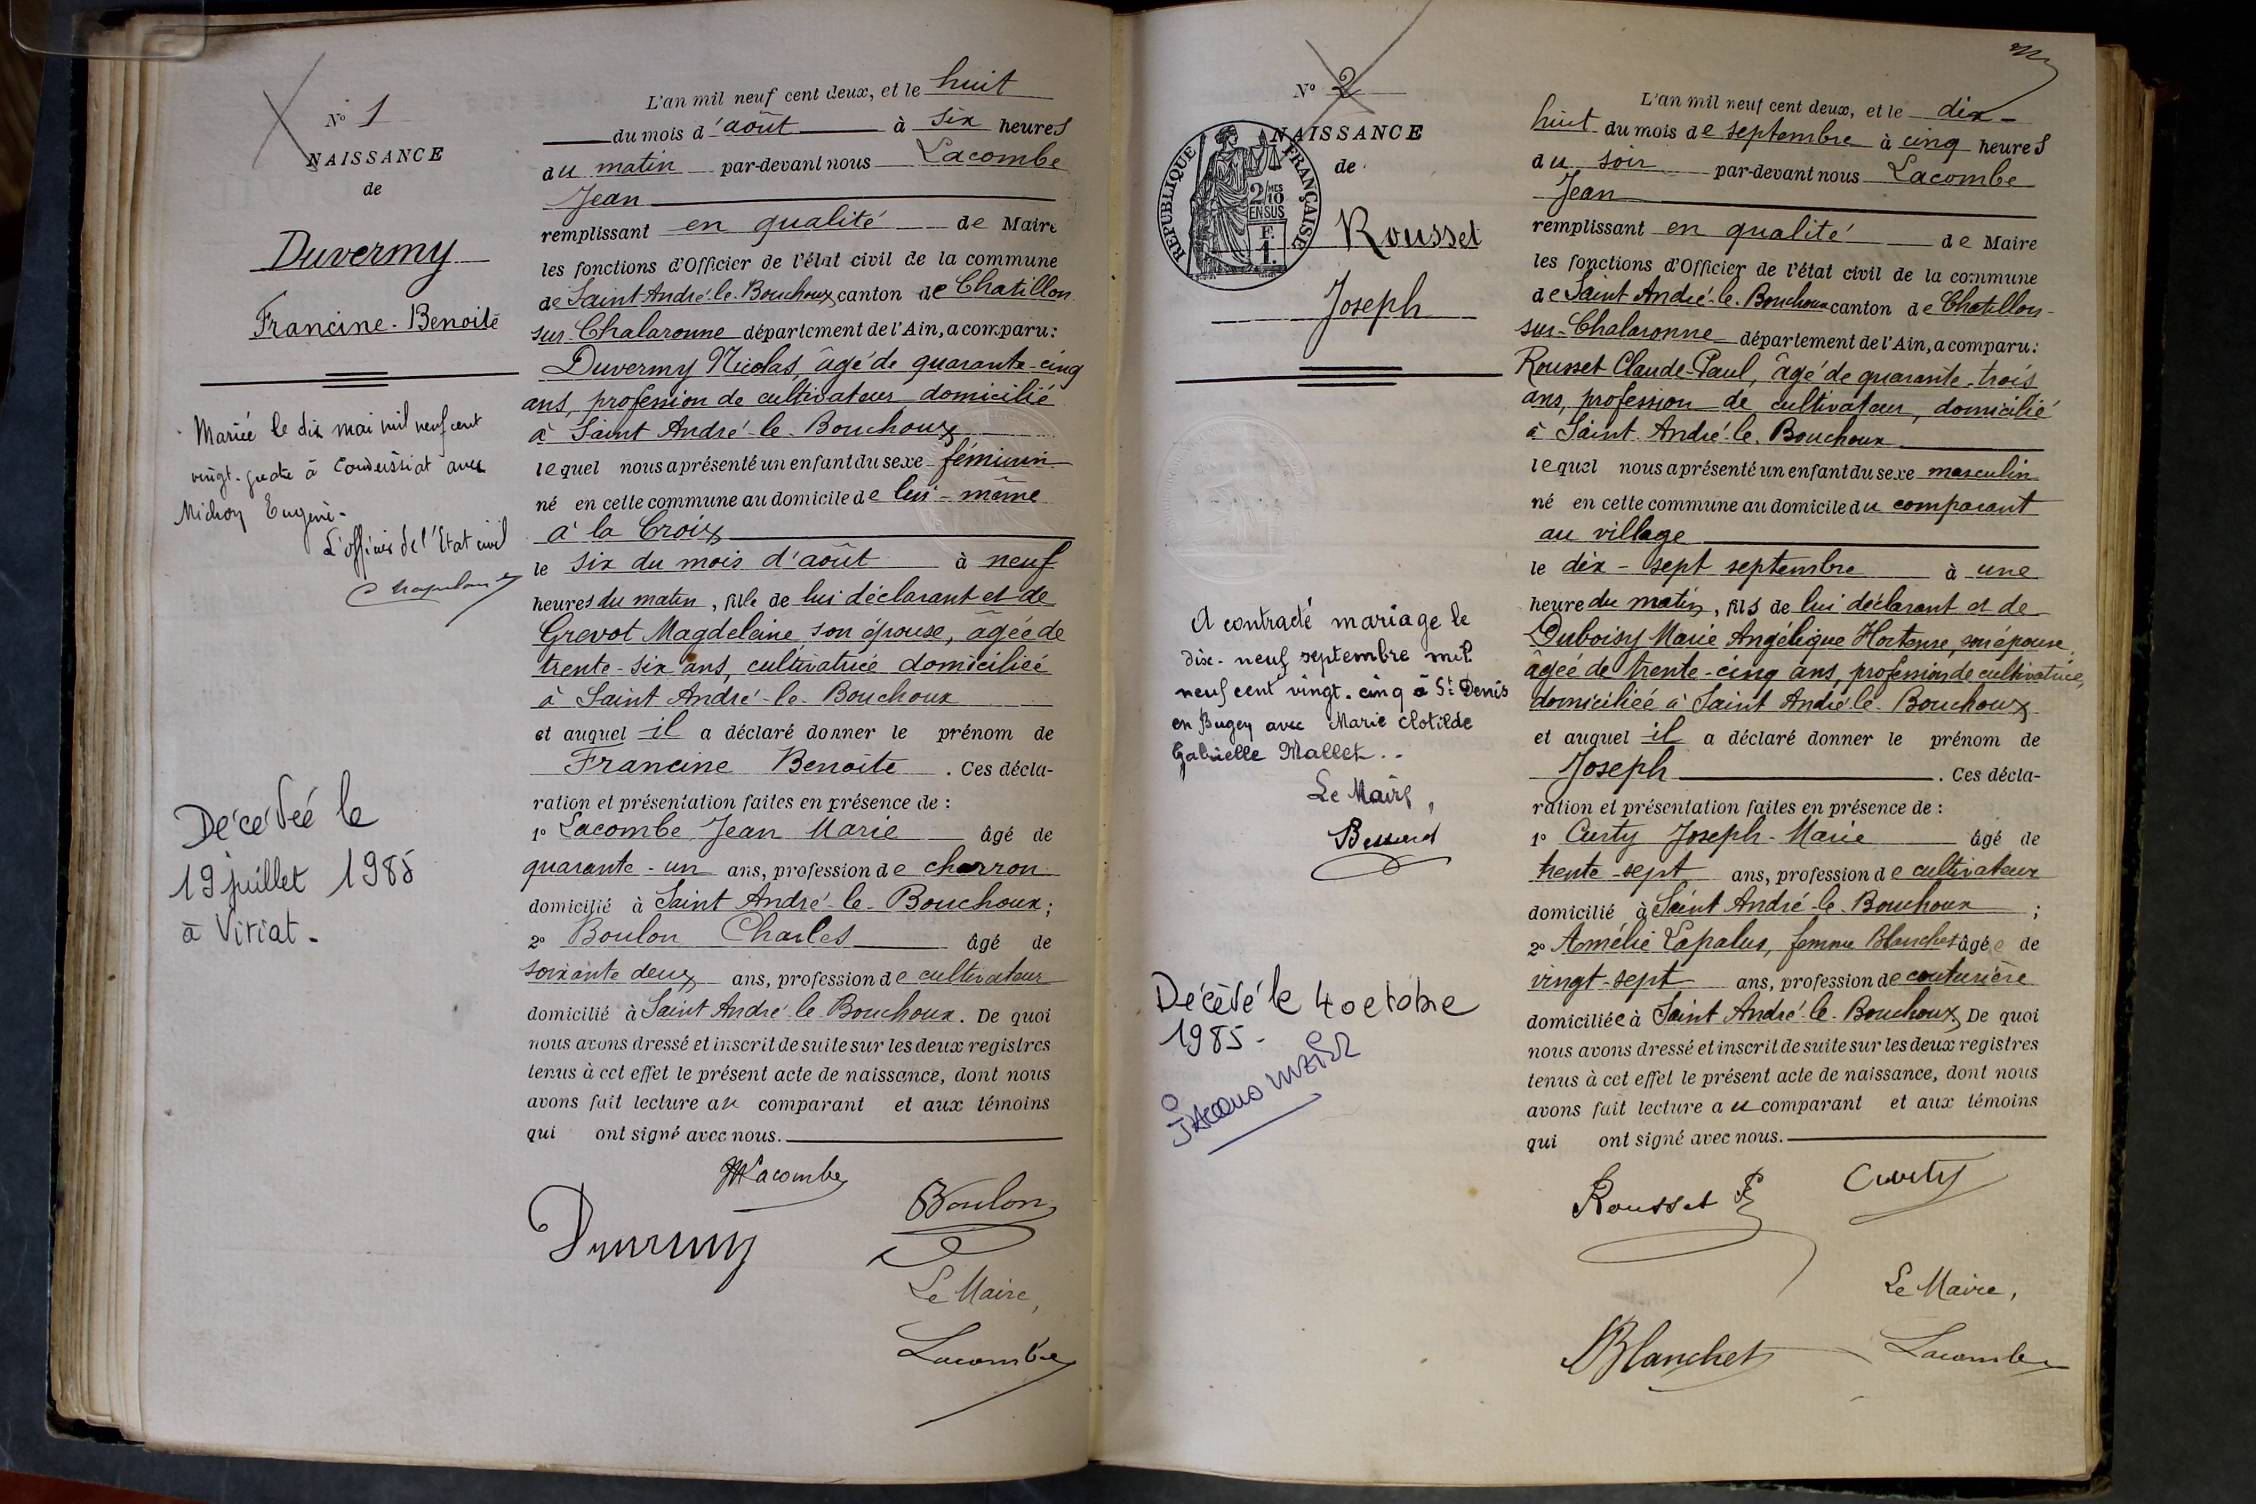 N° 1
NAISSANCE
de
Duvermy
Francine-Benoite
Mariée le dix mai mil neuf cent
vingt-quatre à Condeissiat avec
Michon Eugène-
L'officier de l'Etat civil
Décédée le
19 juillet 1985
à Viriat-
L'an mil neuf cent deux, et le huit
du mois d'août à six heures
du matin par-devant nous Lacombe
Jean
remplissant en qualité de Maire
les fonctions d'Officier de l'état civil de la commune
de Saint-André-le-Bouchoux canton de Chatillon
sur-Chalaronne département de l'Ain, a comparu:
Duvermy Nicolas, âgé de quarante-cinq
ans, profession de cultivateur domicilié
à Saint André-le-Bouchoux
lequel nous a présenté un enfant du sexe féminin
né en cette commune au domicile de lui-même
à la Croix
le six du mois d'août à neuf
heures du matin, fille de lui déclarant et de
Grevot Magdeleine, son épouse, âgée de
trente-six ans, cultivatrice domiciliée
à Saint André-le-Bouchoux
et auquel il a déclaré donner le prénom de
Francine Benoite. Ces décla-
ration et présentation faites en présence de :
1° Lacombe Jean Marie âgé de
quarante-un ans, profession de charron
domicilié à Saint André-le-Bouchoux;
2° Boulon Charles âgé de
soixante deux ans, profession de cultivateur
domicilié à Saint André-le-Bouchoux. De quoi
nous avons dressé et inscrit de suite sur les deux registres
tenus à cet effet le présent acte de naissance, dont nous
avons fait lecture au comparant et aux témoins
qui ont signé avec nous.
JM Lacombe
Duvermy
Boulon
Le Maire,
Lacombe
N° 2
NAISSANCE
de
RÉPUBLIQUE FRANÇAISE
2/MES
10
EN SUS
F.
1.
Rousset
Joseph
A contracté mariage le
dix-neuf septembre mil
neuf cent vingt-cinq à St Denis
en Bugey avec Marie Clotilde
Gabrielle Mallet..
Le Maire,
Décédé le 4 octobre
1985-
L'an mil neuf cent deux, et le dix-
huit du mois de septembre à cinq heures
du soir par-devant nous Lacombe
Jean
remplissant en qualité de Maire
les fonctions d'Officier de l'état civil de la commune
de Saint André-le-Bouchoux canton de Chatillon-
sur-Chalaronne département de l'Ain, a comparu:
Rousset Claude-Paul, âgé de quarante-trois
ans, profession de cultivateur, domicilié
à Saint André-le-Bouchoux
lequel nous a présenté un enfant du sexe masculin
né en cette commune au domicile du comparant
au village
le dix-sept septembre à une
heure du matin, fils de lui déclarant et de
Duboisy Marie Angélique Hortense, son épouse,
âgée de trente-cinq ans, profession de cultivatrice,
domiciliée à Saint André-le-Bouchoux
et auquel il a déclaré donner le prénom de
Joseph. Ces décla-
ration et présentation faites en présence de :
1° Curty Joseph-Marie âgé de
trente-sept ans, profession de cultivateur
domicilié à Saint André-le-Bouchoux ;
2° Amélie Lapalus, femme Blanchet âgée de
vingt-sept ans, profession de couturière
domiciliée à Saint André-le-Bouchoux. De quoi
nous avons dressé et inscrit de suite sur les deux registres
tenus à cet effet le présent acte de naissance, dont nous
avons fait lecture au comparant et aux témoins
qui ont signé avec nous.
Rousset
Curty
Le Maire,
Blanchet
Lacombe